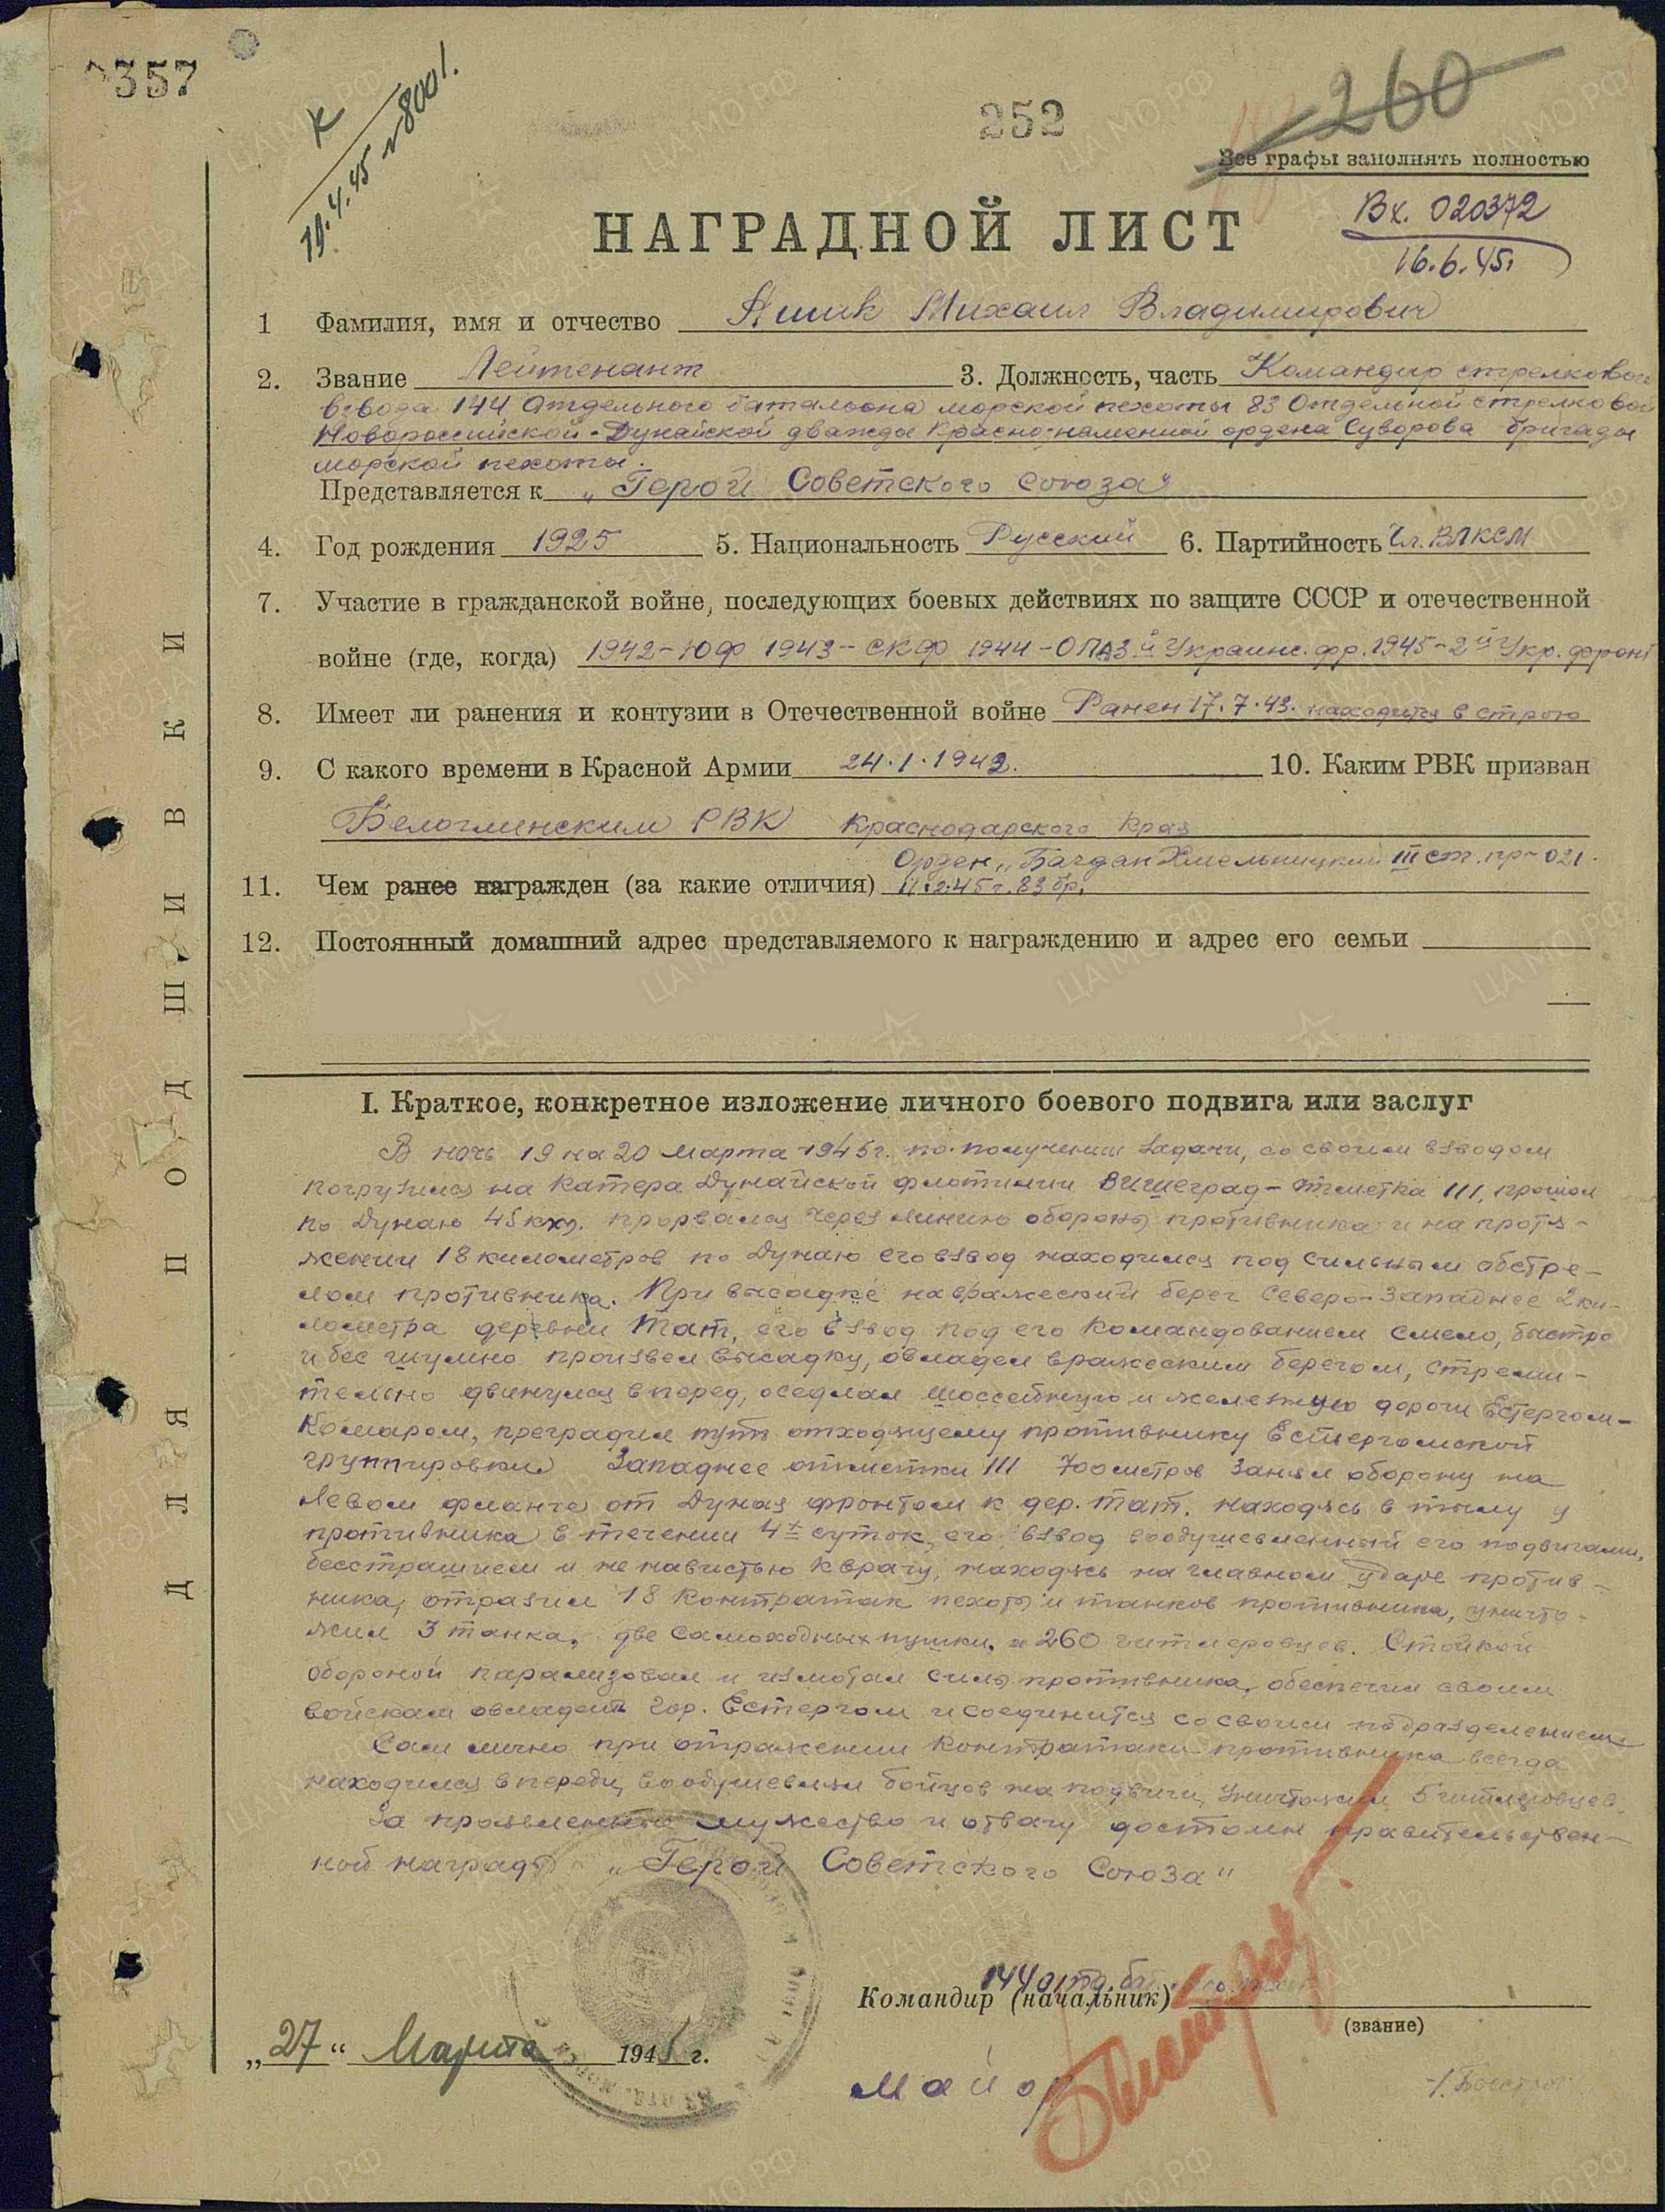 357
252
260
К
19.4.45 N 8001.
Все графы заполнять полностью
Вх. 020372
16.6.45г
НАГРАДНОЙ ЛИСТ
1 Фамилия, имя и отчество Ашик Михаил Владимирович
2. Звание Лейтенант 3. Должность, часть Командир стрелкового
взвода 144 Отдельного батальона морской пехоты 83 Отдельной стрелковой
Новороссийской-Дунайской дважды Краснознаменной ордена Суворова бригады
морской пехоты.
Представляется к „Герой Советского Союза"
4. Год рождения 1925 5. Национальность Русский 6. Партийность Чл. ВЛКСМ
7. Участие в гражданской войне, последующих боевых действиях по защите СССР и отечественной
войне (где, когда) 1942-ЮФ 1943-СКФ 1944-ОПА 3й Украинс. фр. 1945-2й Укр. фронт
8. Имеет ли ранения и контузии в Отечественной войне Ранен 17.7.43. находится в строю
9. С какого времени в Красной Армии 24.1.1943. 10. Каким РВК призван
Белоглинским РВК Краснодарского Края
Орден „Багдан Хмельницкий III ст. пр- 021.
11. Чем ранее награжден (за какие отличия) 11.2.45г. 83 бр.
12. Постоянный домашний адрес представляемого к награждению и адрес его семьи
I. Краткое, конкретное изложение личного боевого подвига или заслуг
В ночь 19 на 20 марта 1945г. по получении задачи, со своим взводом
погрузился на катера Дунайской флотилии Вишеград-отметка 111, прошол
по Дунаю 45 км. прорвался через линию обороны противника и на протя-
жении 18 километров по Дунаю его взвод находился под сильным обстре-
лом противника. При высадке на вражеский берег Северо-Западнее 2 ки-
лометра деревни Тат, его взвод под его командованием смело, быстро
и бес шумно произвел высадку, овладел вражеским берегом, стреми-
тельно двинулся вперед, оседлал шоссейную и железную дороги Естергом-
Комаром, преградил путь отходящему противнику Естергомской
группировки. Западнее отметки 111 700 метров занял оборону на
левом фланге от Дуная фронтом к дер. Тат. находясь в тылу у
противника в течении 4х суток, его взвод воодушевленный его подвигами,
бесстрашием и ненавистью к врагу, находясь на главном ударе против-
ника, отразил 18 контратак пехоты и танков противника, уничто-
жил 3 танка, две самоходных пушки, и 260 гитлеровцев. Стойкой
обороной парализовал и измотал силы противника, обеспечил своим
войскам овладеть гор. Естергом и соединится со своим подразделением.
Сам лично при отражении контратаки противника всегда
находился впереди, воодушевляя бойцов на подвиги, уничтожил 5 гитлеровцев.
За проявленное мужество и отвагу достоин правительствен-
ной награды „Герой Советского Союза"
Командир (начальник) 144 отд. бат.
(звание)
„27" Марта 1945 г.
Майор
ДЛЯ ПОДШИВКИ